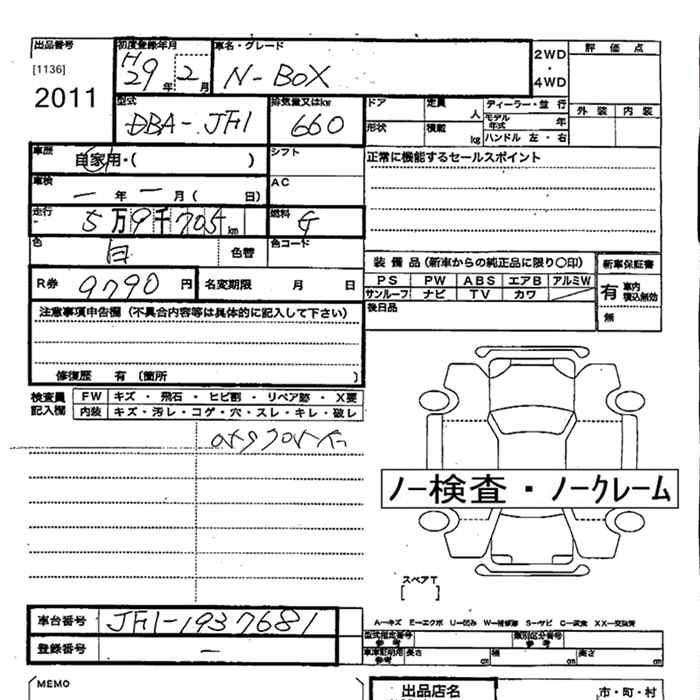 出品番号 初度登録年月 車名・グレード 2WD ・ 4WD 評価点
[1136] H29年 2月 N-BOX
2011
外装 内装
型式 DBA-JF1 排気量又はkw 660 ドア 定員 人 ディーラー・並行
形状 積載 kg モデル年式 年
ハンドル 左・右
車歴 自家用・( ) シフト 正常に機能するセールスポイント
車検 一年一月( 日) AC
走行 5万9千705km 燃料 G
色 白 色替 色コード
装備品(新車からの純正品に限り〇印) 新車保証書
PS PW ABS エアB アルミW 有 車内積込無効
サンルーフ ナビ TV カワ
R券 9790円 名変期限 月 日 後日品 無
注意事項申告欄(不具合内容等は具体的に記入して下さい)
修復歴 有 〔箇所 〕
検査員記入欄 FW キズ・飛石・ヒビ割・リペア跡・X要
内装 キズ・汚レ・コゲ・穴・スレ・キレ・破レ
ノー検査・ノークレーム
スペアT
[ ]
車台番号 JF1-1937681
A－キズ E－エクボ U－凹み W－補修跡 S－サビ C－腐食 XX－交換済
登録番号 －
型式指定番号 参考 類別区分番号 参考
車庫証明用 参考 長さ cm 幅 cm 高さ cm
MEMO 出品店名 市・町・村